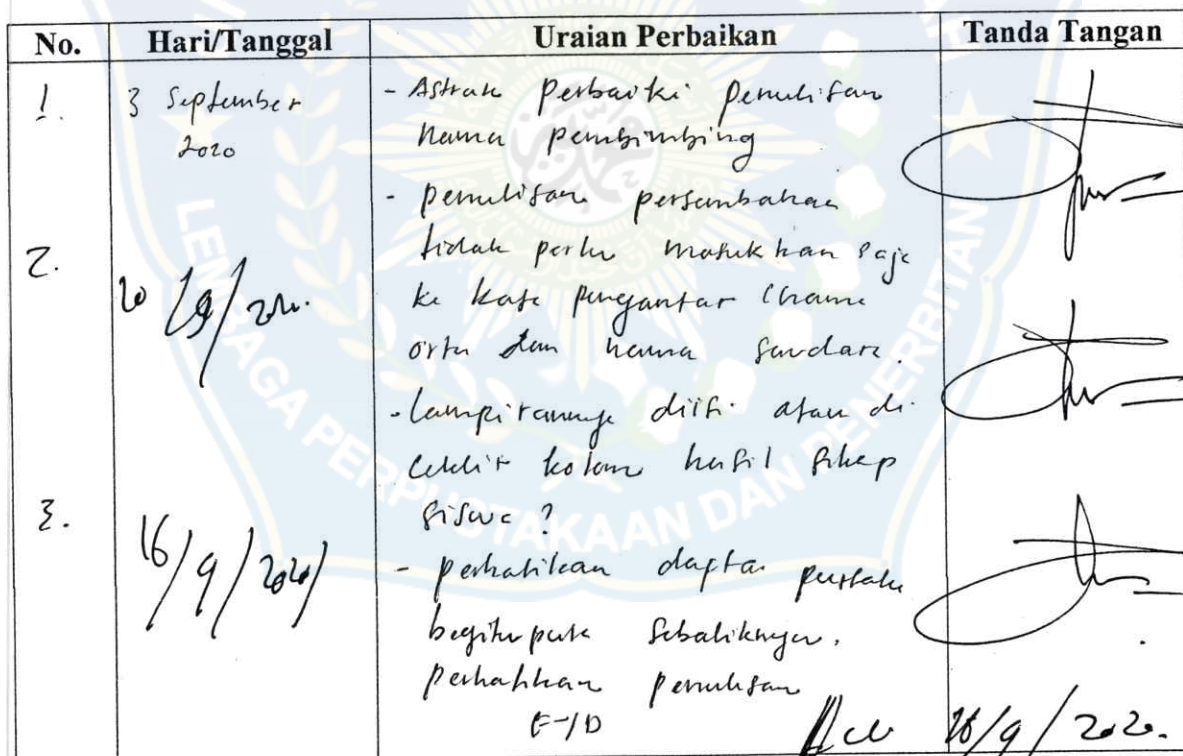 No. Hari/Tanggal Uraian Perbaikan Tanda Tangan
1. 3 September 2020
- Astrak perbaiki penulisan
nama pembimbing
- penulisan persembahan
tidak perlu masukkan saja
ke kata pengantar (nama
ortu dan nama saudara.
2. /9/
- lampirannya diisi atau di
ceklis kolom hasil sikap
siswa ?
3. 16/9/2020
- perhatikan daftar pustaka
begitu pula sebaliknya.
perhatikan penulisan
EYD
Acc 16/9/2020.
LEMBAGA PERPUSTAKAAN DAN PENERBITAN